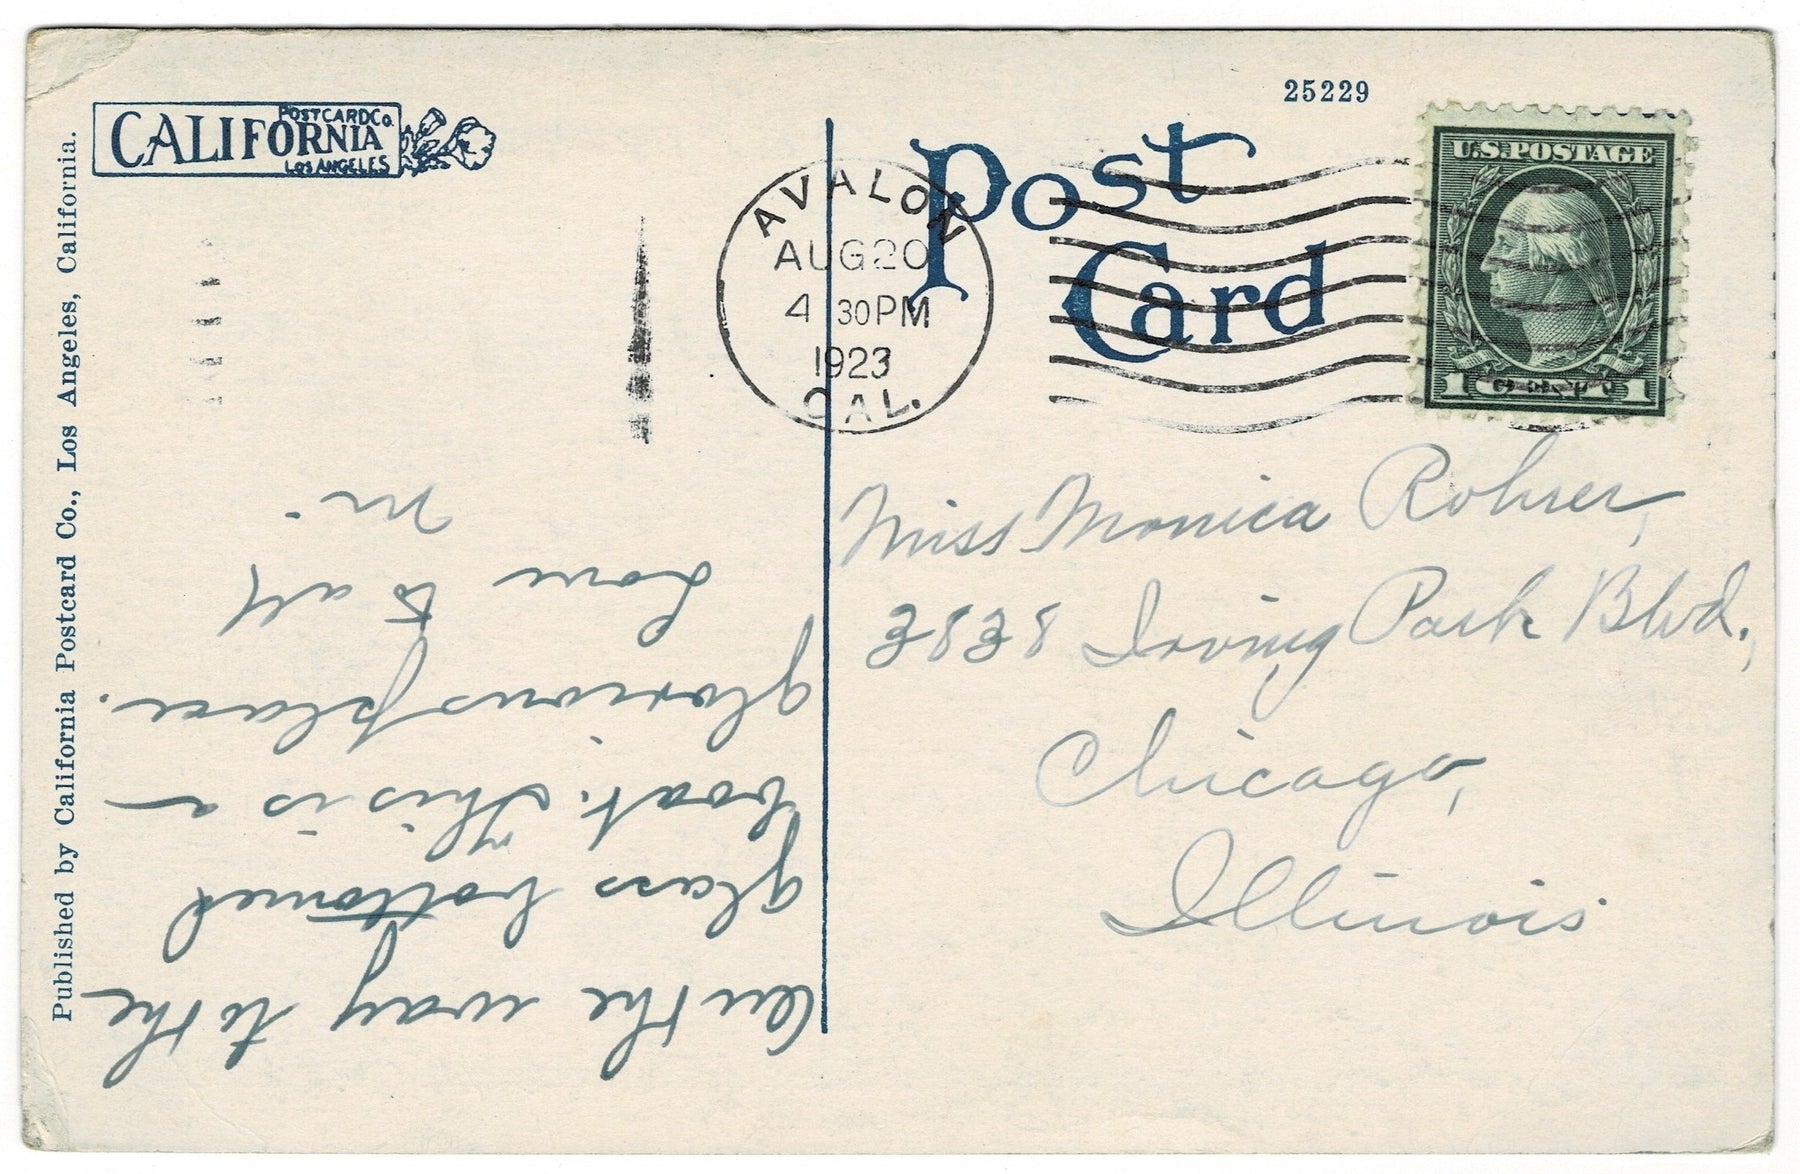 25229
CALIFORNIA
POSTCARD Co.
LOS ANGELES
Post
Card
AVALON
AUG 20
4 30 PM
1923
CAL.
U.S.POSTAGE
1 CENT 1
Published by California Postcard Co., Los Angeles, California.
On the way to the
glass bottomed
boat. This is a
glorious place.
Love to all
M.
Miss Monica Rohrer,
3838 Irving Park Blvd.,
Chicago,
Illinois